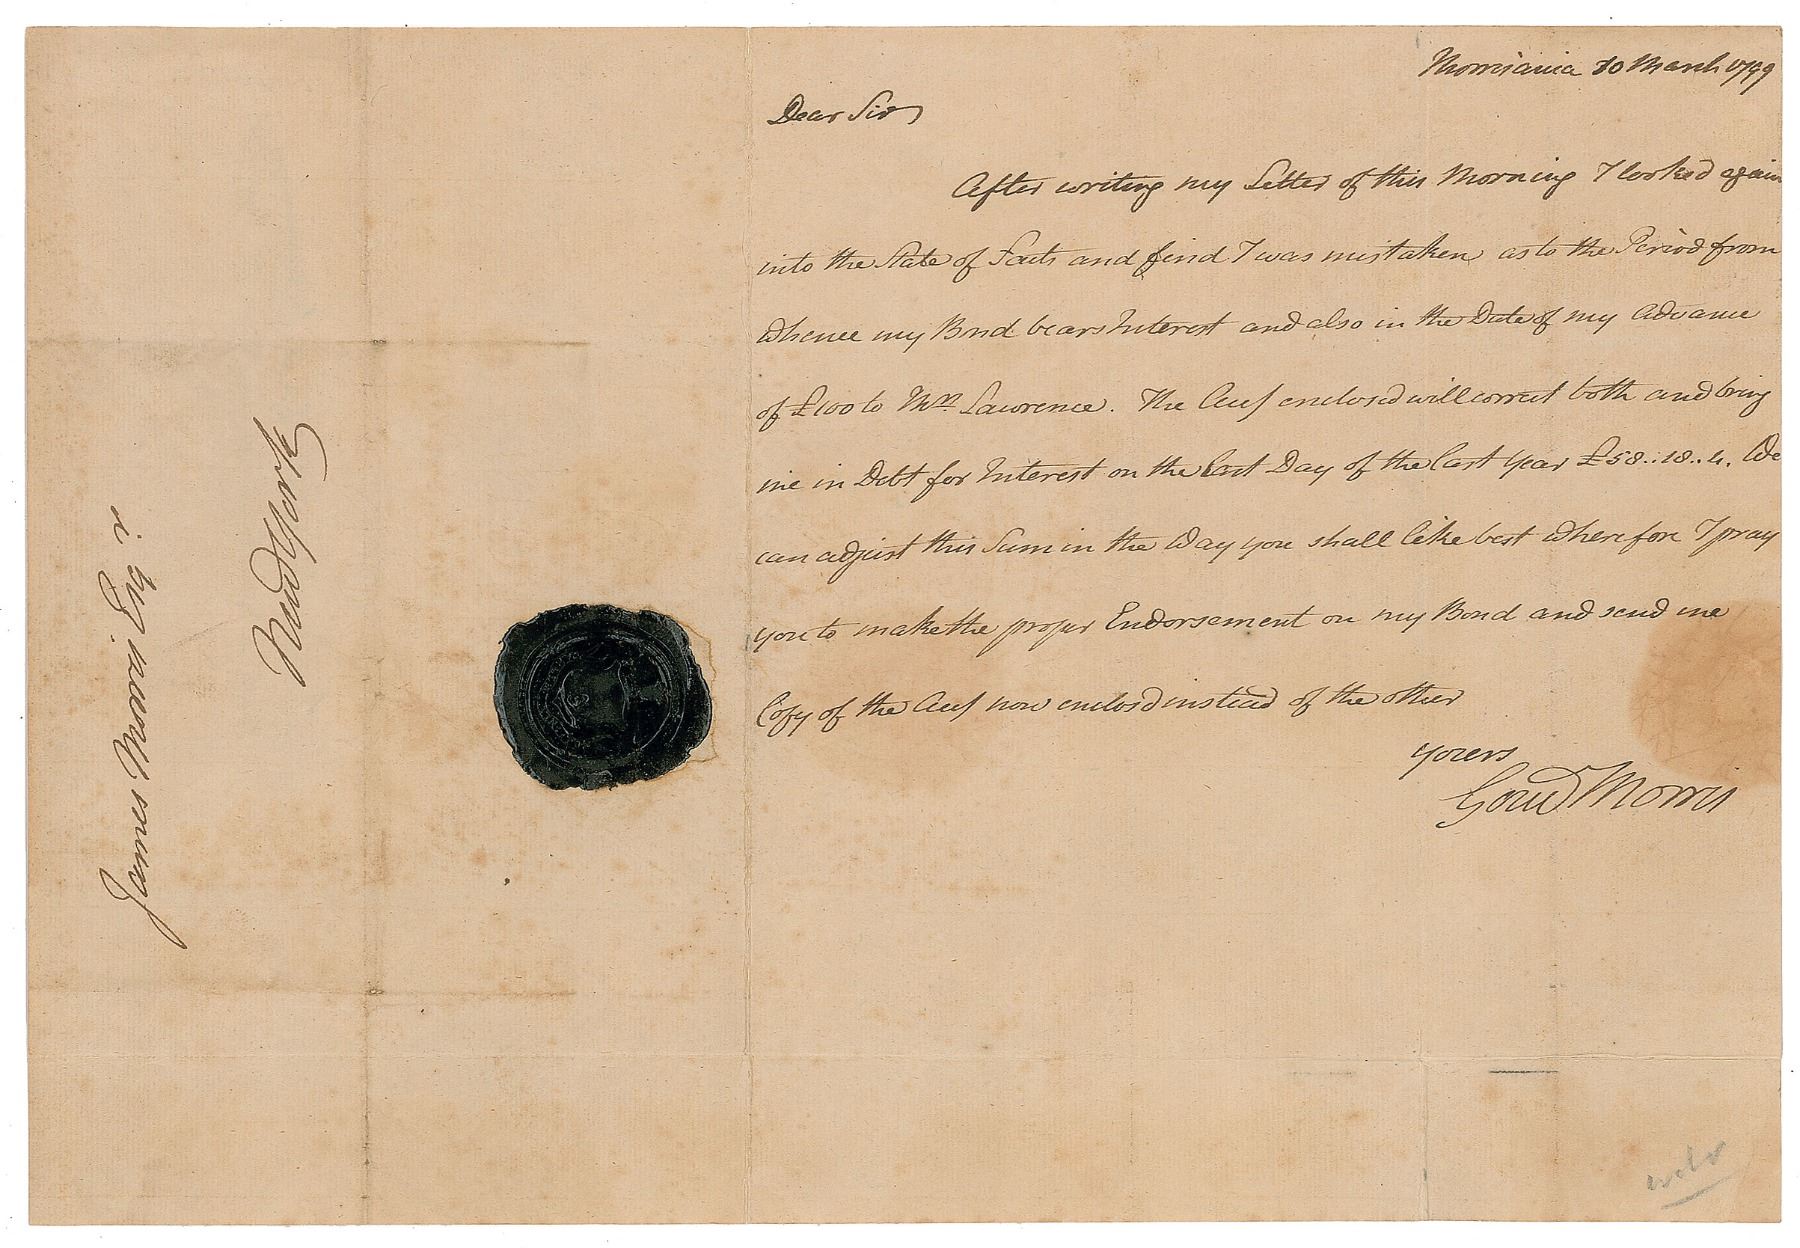 Morrisania 10 March 1799
Dear Sir
After writing my Letter of this Morning I looked again
into the State of Facts and find I was mistaken as to the Period from
whence my Bond bears Interest and also in the Date of my Advance
of £100 to Mrs. Lawrence. The enclosed will correct both and bring
me in Debt for Interest on the last Day of the last Year £58..18..4. We
can adjust this Sum in the Way you shall like best wherefore I pray
you to make the proper Endorsement on my Bond and send me
Copy of the now enclosd instead of the other
yours
Gouv Morris
James Morris Esqr.
New York